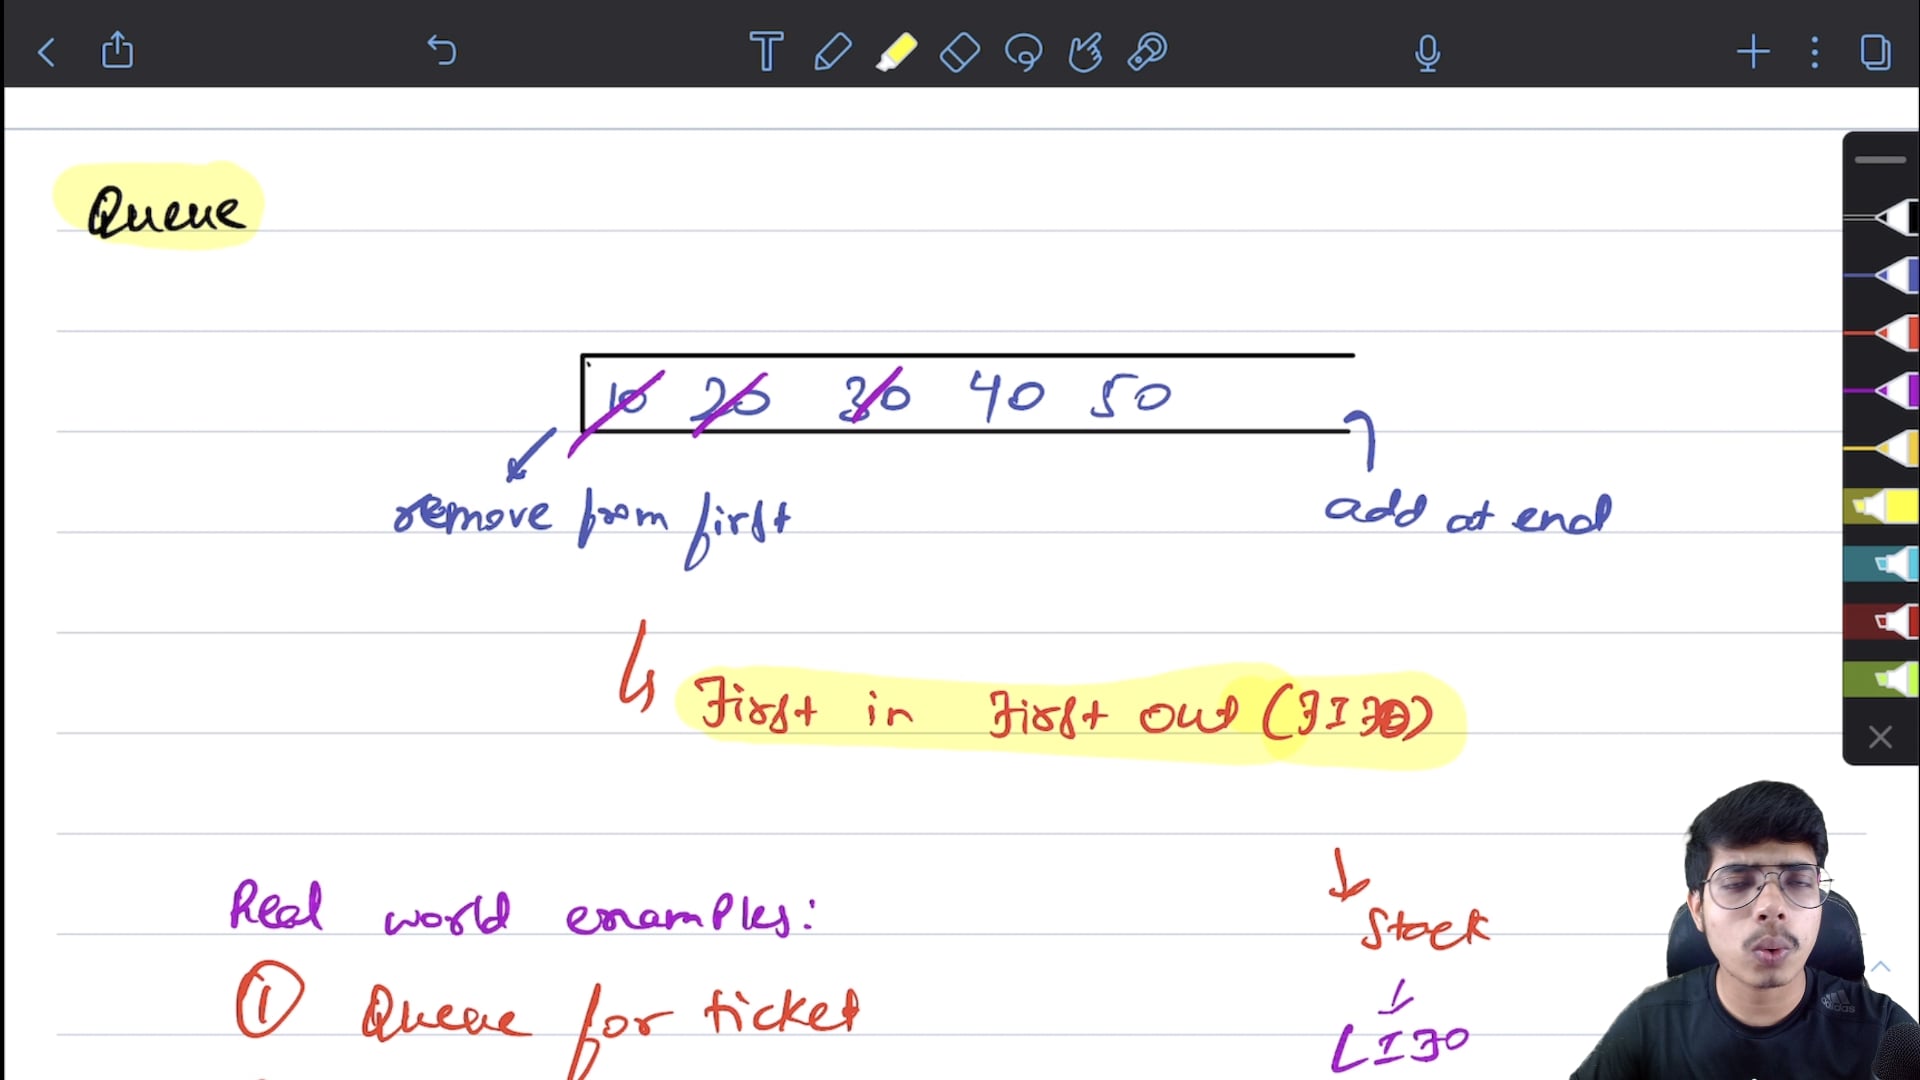 Queue
10 20 30 40 50
remove from first
add at end
First in First out (FIFO)
Real world examples:
Stack
① Queue for ticket
LIFO
adidas